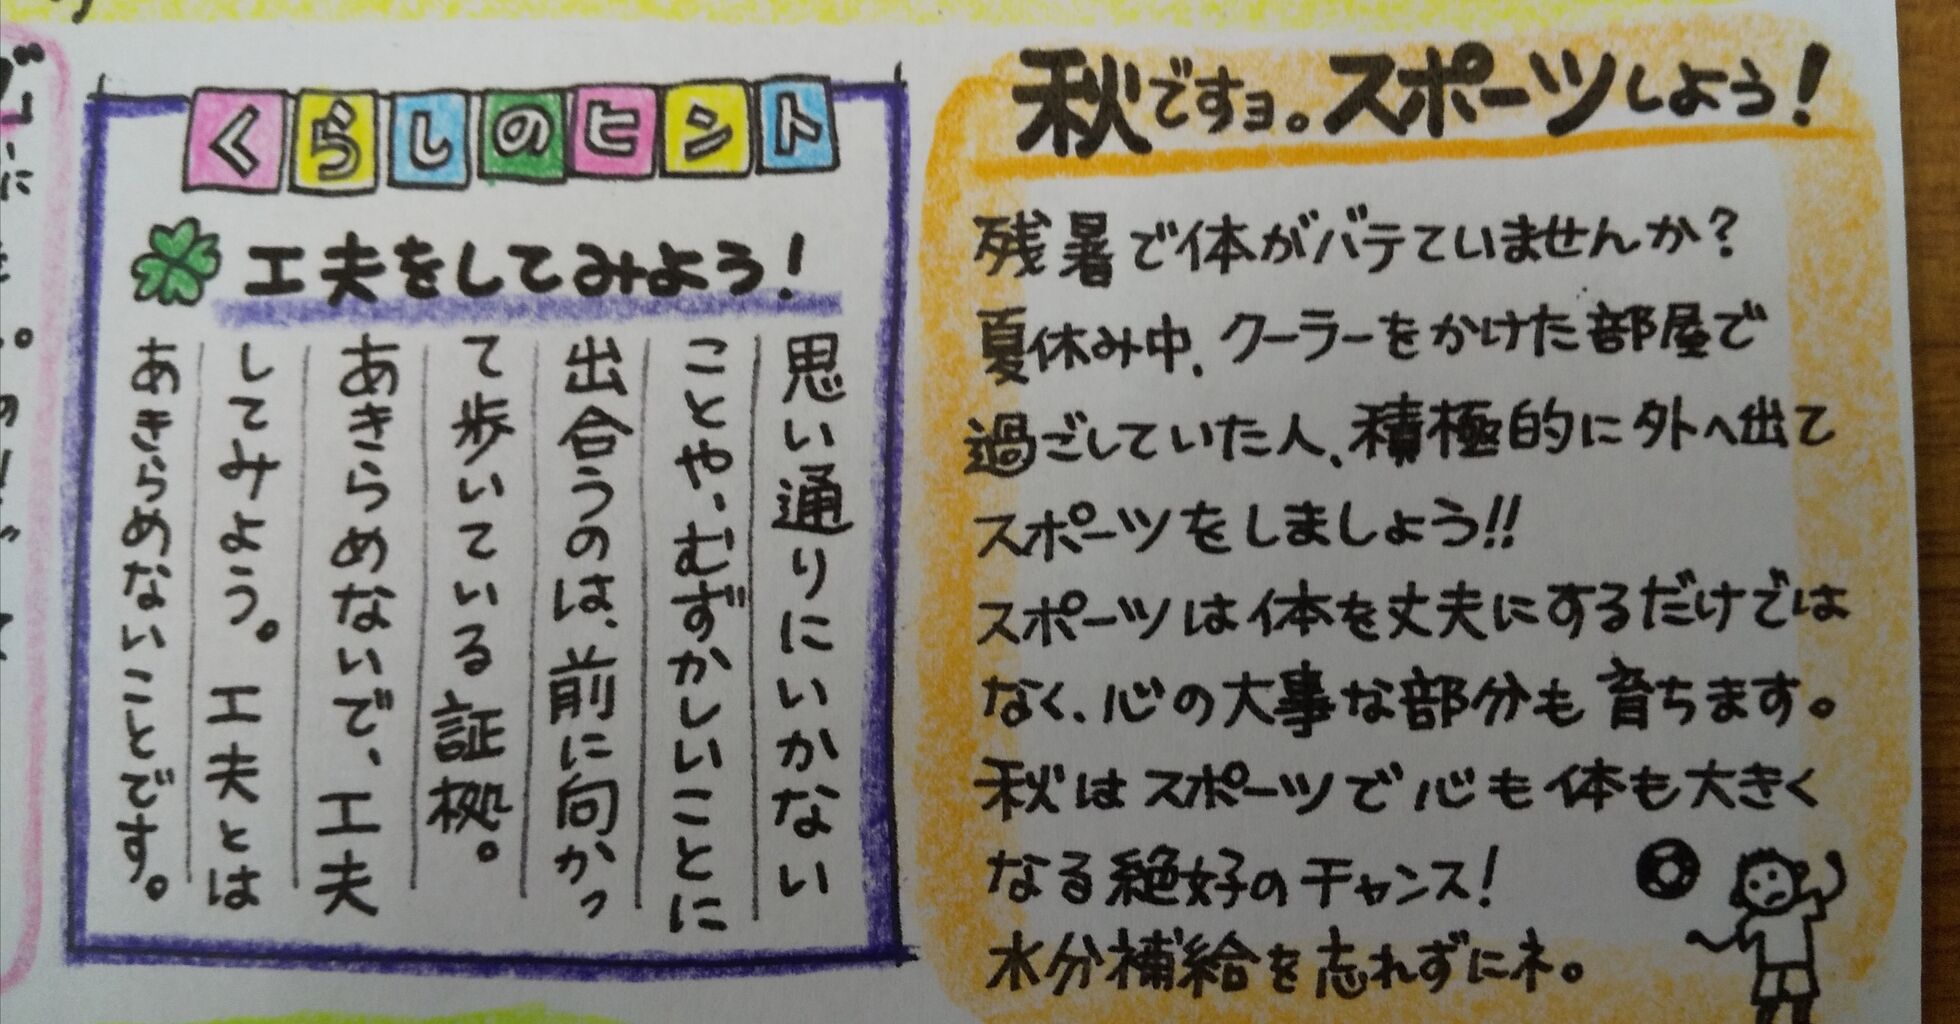 くらしのヒント
工夫をしてみよう!
思い通りにいかない
ことや、むずかしいことに
出合うのは、前に向かっ
て歩いている証拠。
あきらめないで、工夫
してみよう。工夫とは
あきらめないことです。
秋ですヨ。スポーツしよう!
残暑で体がバテていませんか?
夏休み中、クーラーをかけた部屋で
過ごしていた人、積極的に外へ出て
スポーツをしましょう!!
スポーツは体を丈夫にするだけでは
なく、心の大事な部分も育ちます。
秋はスポーツで心も体も大きく
なる絶好のチャンス!
水分補給を忘れずにネ。